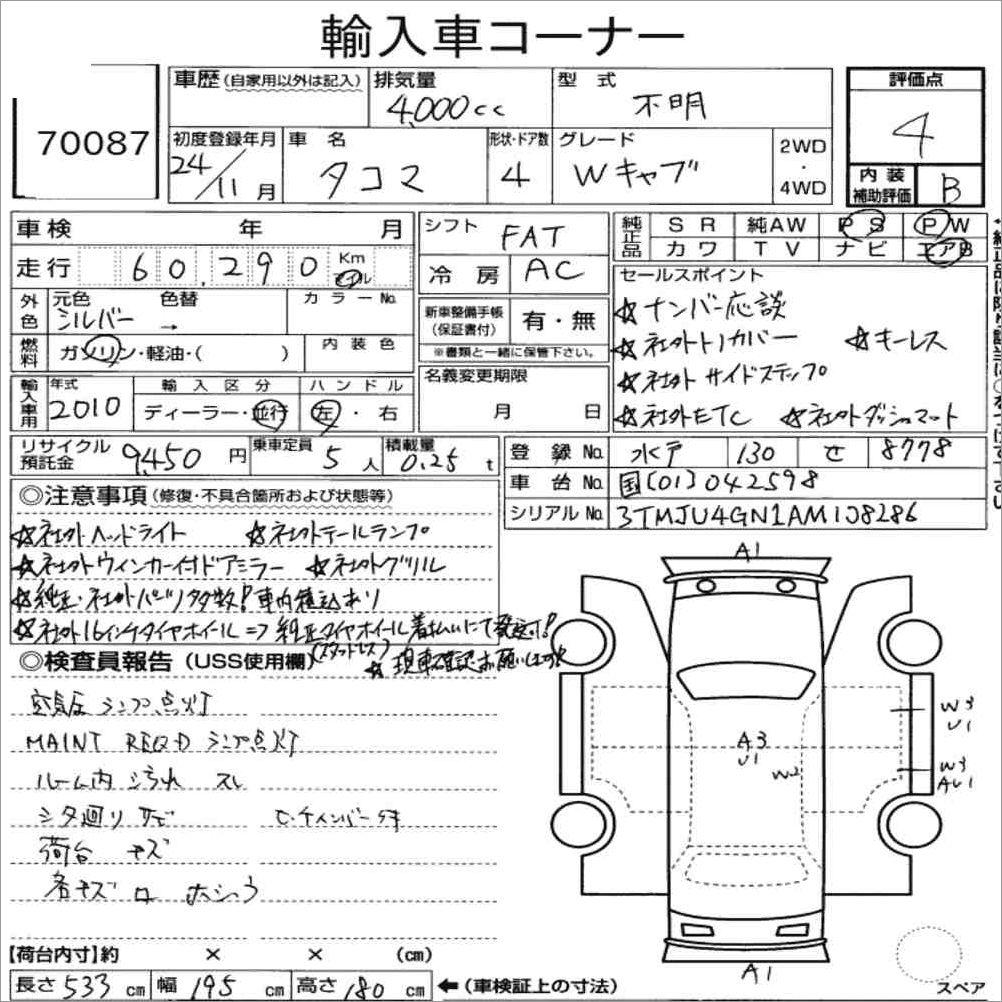 輸入車コーナー
70087
車歴(自家用以外は記入)
排気量
4,000cc
型式
不明
評価点
4
初度登録年月
24/11月
車名
タコマ
形状・ドア数
4
グレード
Wキャブ
2WD
・
4WD
内装
補助評価
B
車検 年 月
走行 60,290 Km マイル
シフト
FAT
冷房
AC
純正品
SR 純AW PS PW
カワ TV ナビ エアB
外色
元色 色替 カラーNo.
シルバー →
燃料
ガソリン・軽油・( )
内装色
新車整備手帳
(保証書付)
有・無
※書類と一緒に保管下さい。
セールスポイント
☆ナンバー応談
☆社外トノカバー ☆キーレス
☆社外サイドステップ
☆社外ETC ☆社外ダッシュマット
輸入車用
年式
2010
輸入区分
ディーラー・並行
ハンドル
左・右
名義変更期限
月 日
リサイクル
預託金
9,450円
乗車定員
5人
積載量
0.25t
登録No. 水戸 130 せ 8778
車台No. 国[01]042598
シリアルNo. 3TMJU4GN1AM108286
◎注意事項(修復・不具合箇所および状態等)
☆社外ヘッドライト ☆社外テールランプ
☆社外ウィンカー付ドアミラー ☆社外グリル
☆純正・社外パーツ多数!車内積込あり
☆社外16インチタイヤホイール⇒純正タイヤホイール着払いにて
(スタッドレス)
☆現車確認お願いします!
◎検査員報告(USS使用欄)
空気圧ランプ点灯
MAINT REQD ランプ点灯
ルーム内 汚れ スレ
シタ廻り サビ
荷台 キズ
各キズ
A1
W3
U1
A3
U1
W2
W3
AU1
A1
スペア
【荷台内寸】約 × × (cm)
長さ533cm 幅195cm 高さ180cm ←(車検証上の寸法)